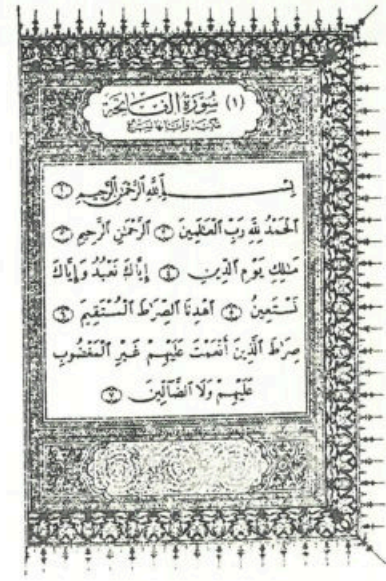 (١) سُورَةُ الفَاتِحَة
مكيّة وآياتها سبع
بِسْمِ اللَّهِ الرَّحْمَٰنِ الرَّحِيمِ ①
الْحَمْدُ لِلَّهِ رَبِّ الْعَالَمِينَ ② الرَّحْمَٰنِ الرَّحِيمِ ③
مَالِكِ يَوْمِ الدِّينِ ④ إِيَّاكَ نَعْبُدُ وَإِيَّاكَ
نَسْتَعِينُ ⑤ اهْدِنَا الصِّرَاطَ الْمُسْتَقِيمَ ⑥
صِرَاطَ الَّذِينَ أَنْعَمْتَ عَلَيْهِمْ غَيْرِ الْمَغْضُوبِ
عَلَيْهِمْ وَلَا الضَّالِّينَ ⑦